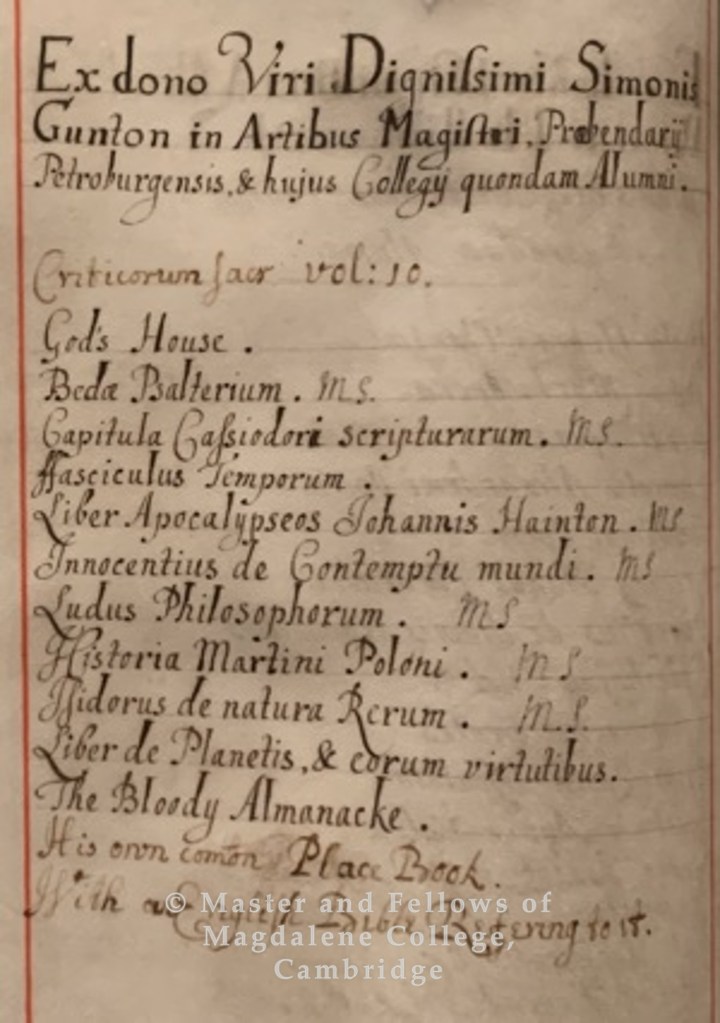 Ex dono Viri Digniſsimi Simonis
Gunton in Artibus Magiſtri, Prebendarij
Petroburgensis, & hujus Collegij quondam Alumni.
Criticorum ſacr vol: 10.
God's House.
Bedæ Psalterium. MS.
Capitula Caſsiodori scripturarum. MS.
ffasciculus Temporum.
Liber Apocalÿpseos Johannis Hainton. MS
Innocentius de Contemptu mundi. MS
Ludus Philosophorum. MS
Historia Martini Poloni. MS
Iſidorus de natura Rerum. M.S.
Liber de Planetis, & eorum virtutibus.
The Bloody Almanacke.
His own comōn Place Book.
With an Engliſh Bible Referring to it.
© Master and Fellows of
Magdalene College,
Cambridge